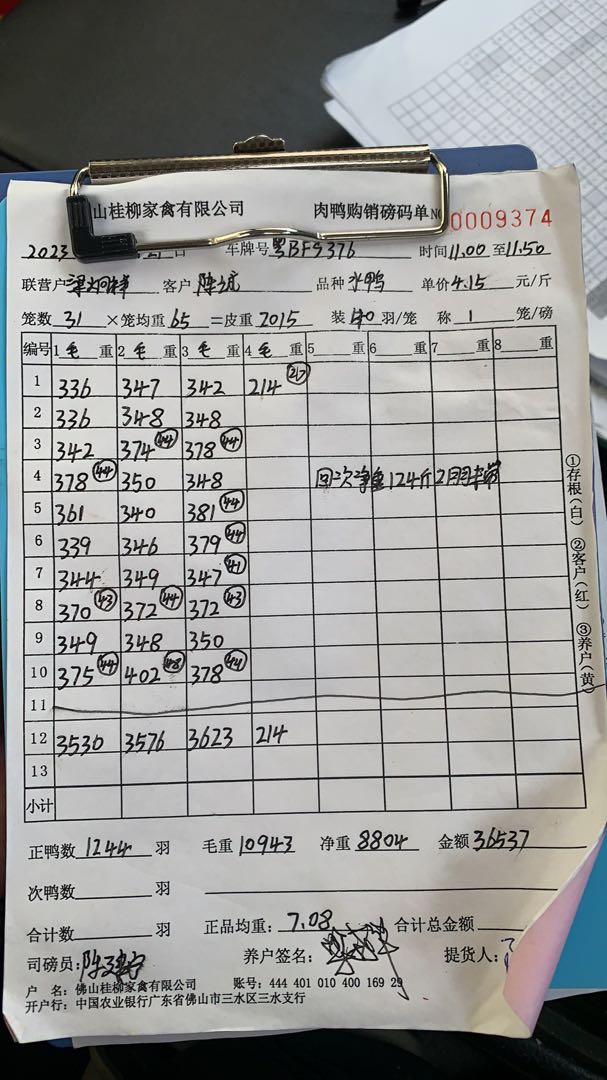 山桂柳家禽有限公司 肉鸭购销磅码单 NO 0009374
2023 日 车牌号 粤BFS376 时间11.00至11.50
联营户 客户 品种 水鸭 单价4.15元/斤
笼数 31 ×笼均重 65 =皮重 2015 装 40 羽/笼 称 1 笼/磅
编号 1 毛 重 2 毛 重 3 毛 重 4 毛 重 5 重 6 重 7 重 8 重
1 336 347 342 214 (27)
2 336 348 348
3 342 374 (44) 378 (44)
4 378 (44) 350 348 回次净重124斤
5 361 340 381 (44)
6 339 346 379 (44)
7 344 349 347 (41)
8 370 (43) 372 (44) 372 (43)
9 349 348 350
10 375 (44) 402 (48) 378 (44)
11
12 3530 3576 3623 214
13
小计
①存根(白) ②客户(红) ③养户(黄)
正鸭数 1244 羽 毛重 10943 净重 8804 金额 36537
次鸭数 羽
合计数 羽 正品均重: 7.08 合计总金额
司磅员: 养户签名: 提货人:
户 名: 佛山桂柳家禽有限公司 账号: 444 401 010 400 169 29
开户行: 中国农业银行广东省佛山市三水区三水支行